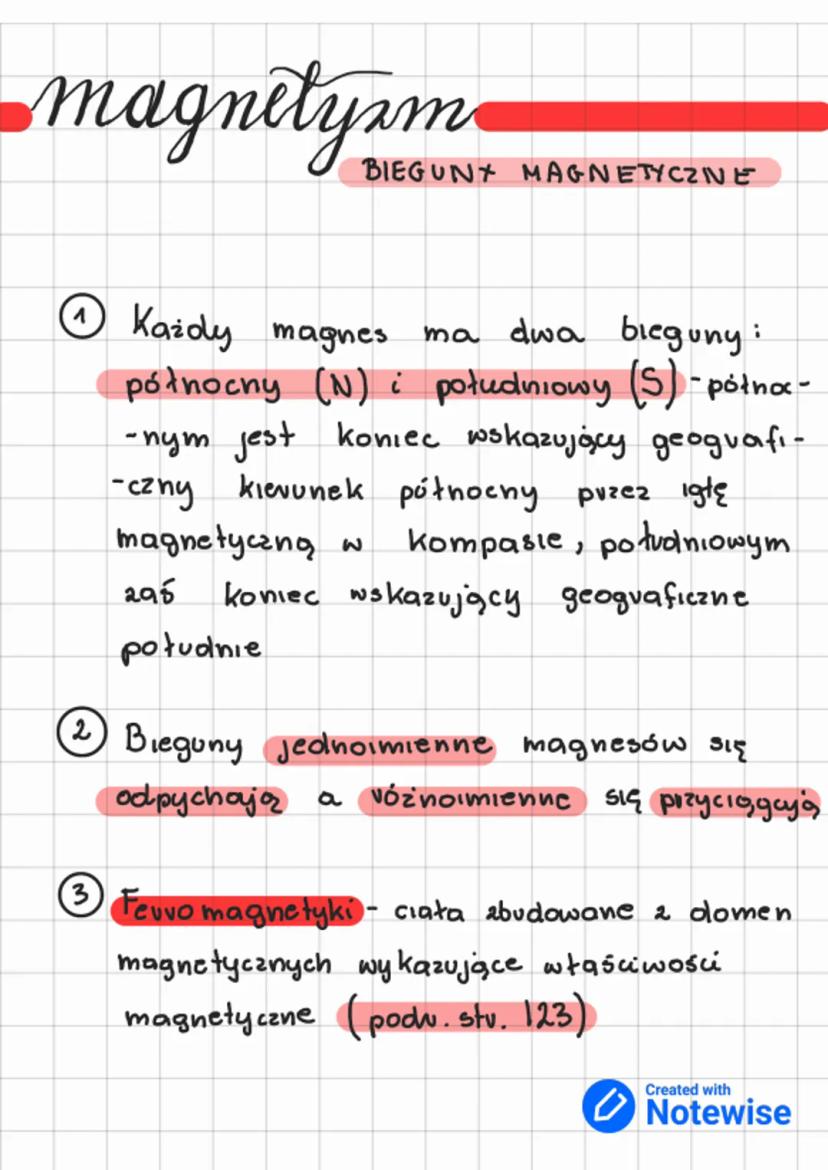 magnetyzm
BIEGUNY MAGNETYCZNE
1 Każdy magnes ma dwa bieguny:
północny (N) i południowy (S) - północ-
-nym jest koniec wskazujący geografi-
-czny kierunek północny przez igłę
magnetyczną w kompasie, południowym
zaś koniec wskazujący geograficzne
południe
2 Bieguny jednoimienne magnesów się
odpychają a różnoimienne się przyciągają
3 Ferromagnetyki - ciała zbudowane z domen
magnetycznych wykazujące właściwości
magnetyczne (podr. str. 123)
Created with
Notewise